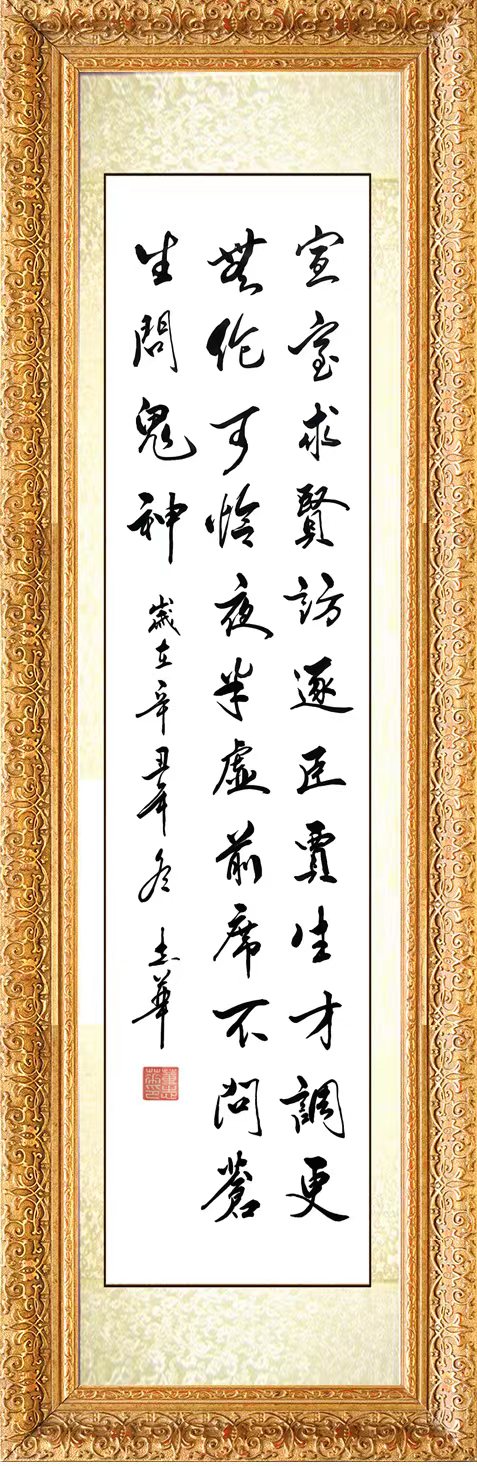 宣室求賢訪逐臣賈生才調更
無伦可怜夜半虛前席不問蒼
生問鬼神 歲在辛丑年冬 志華